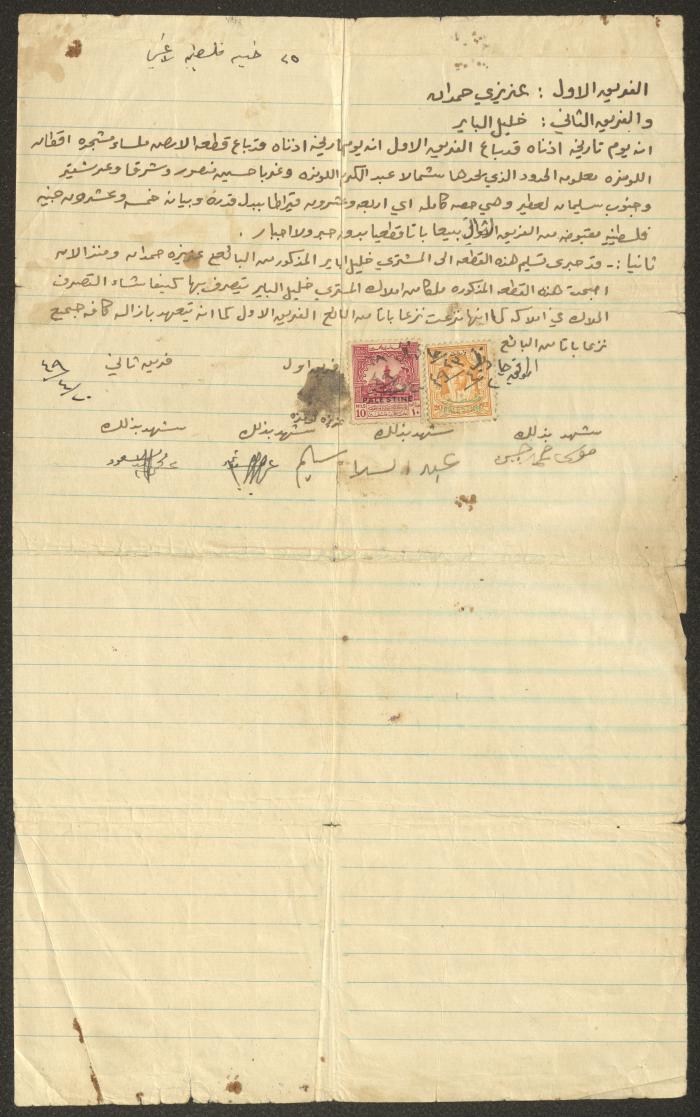 ٢٥ جنيه فلسطيني لا غير
الفريق الاول : عزيزي حمدان
والفريق الثاني : خليل الباير
انه يوم تاريخه ادناه قد باع الفريق الاول انه يوم تاريخه ادناه قد باع قطعة الارض ملساء ومشجره
اللوزه معلومة الحدود الذي يحدها شمالا عبد الكريم اللوزه وغربا حسين منصور وشرقا وعر
وجنوب سليمان لعطير وهي حصه كامله اي اربعه وعشرون قيراطا ببدل قدره وبيانه خمسه وعشرون جنيه
فلسطيني مقبوضه من الفريق الثاني بيعا باتا قطعيا بدون جبر ولا اجبار .
ثانيا :- قد جرى تسليم هذه القطعه الى المشتري خليل الباير المذكور من البائع عزيزه حمدان ومنذ الان
اصبحت هذه القطعه المذكوره ملكا من املاك المشتري خليل الباير يتصرف بها كيفما شاء التصرف
الملاك في املاكه كما انها نزعت نزعا باتا من البائع الفريق الاول كما انه يتعهد بازالة كافة جميع
نزعا باتا من البائع
فريق اول
فريق ثاني
٤٩/٤/٢٠
PALESTINE
MILS 10 ١٠
PALESTINE
شهد بذلك
شهد بذلك
شهد بذلك
شهد بذلك
موسى
عبد السلام سليم